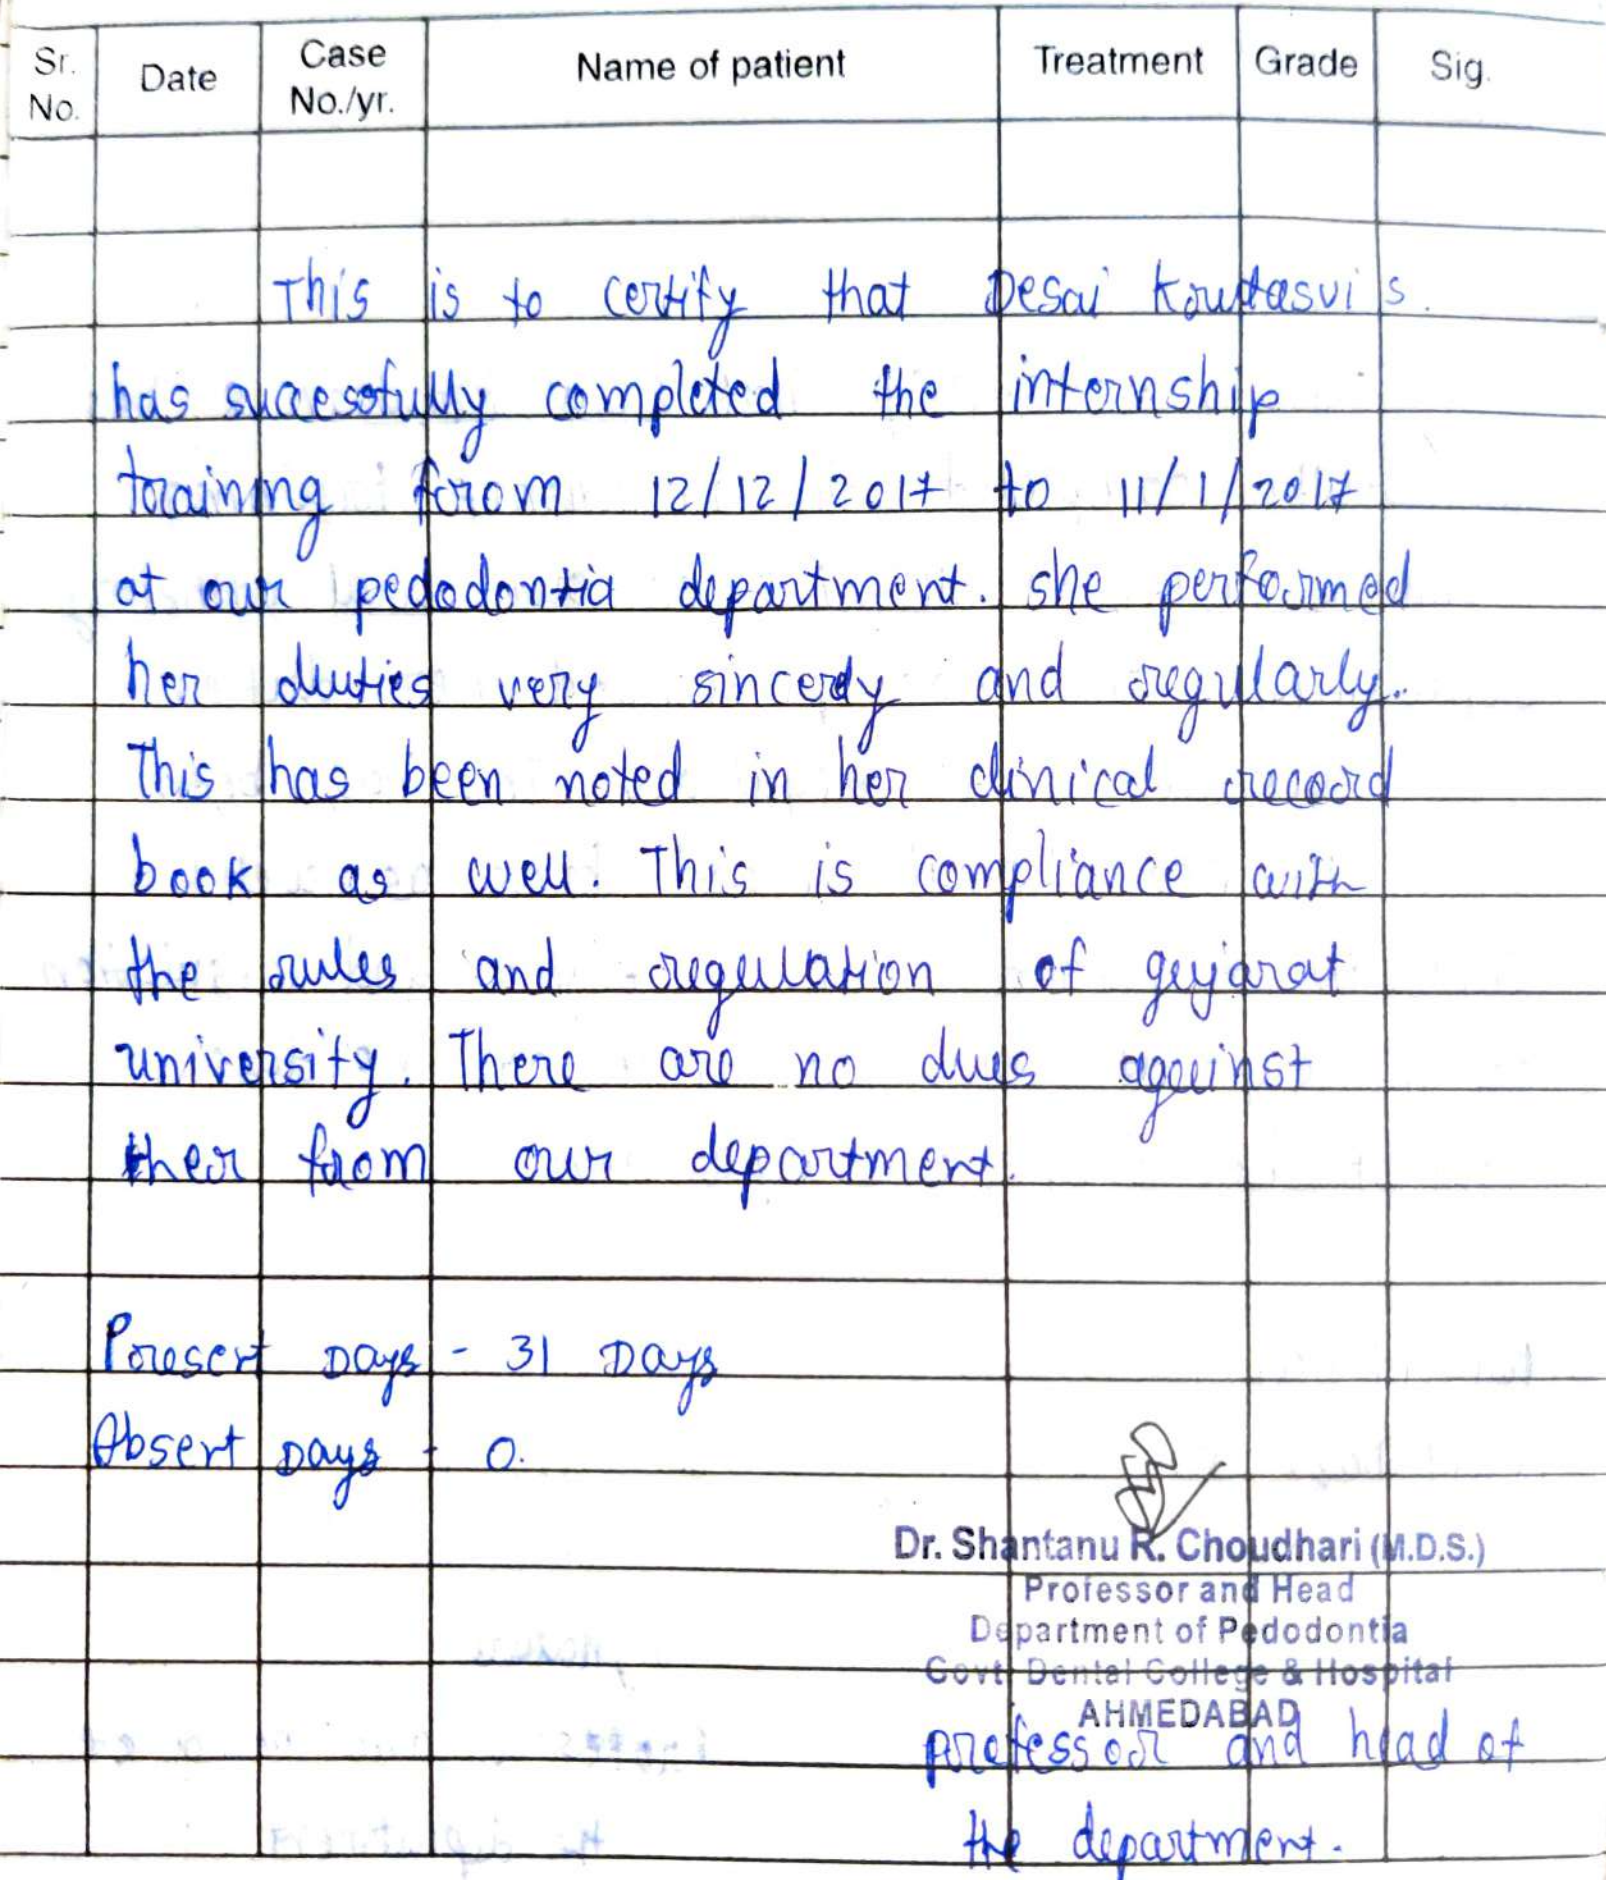 Sr. No. Date Case No./yr. Name of patient Treatment Grade Sig.
This is to certify that Desai s.
has sucessfully completed the internship
training from 12/12/2017 to 11/1/2017
at our pedodontia department. she performed
her duties very sincerly and regularly.
This has been noted in her clinical record
book as well. This is compliance with
the rules and regulation of gujarat
university. There are no dues against
her from our department.
Present Days - 31 Days
Absent Days - 0.
Dr. Shantanu R. Choudhari (M.D.S.)
Professor and Head
Department of Pedodontia
Govt. Dental College & Hospital
AHMEDABAD
professor and head of
the department.